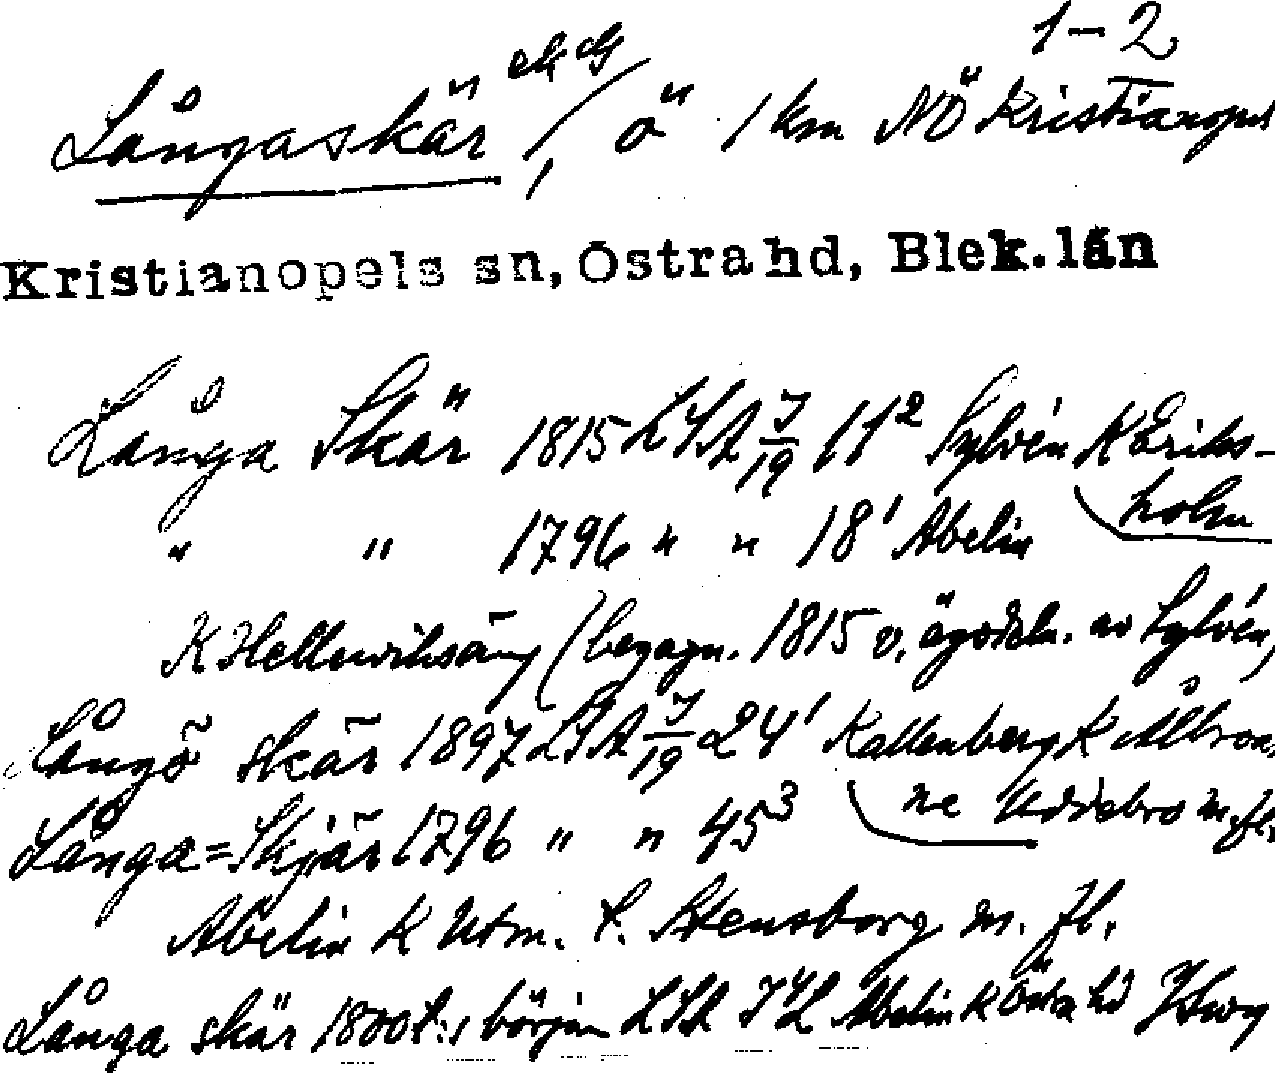 1-2
Långaskär, ö 1 km NÖ Kristianopel
Kristianopels sn, Östra hd, Blek. län
Långa Skär 1815 LSA J/19 11² Sylvén K Eriks-
holm
" " 1796 " " 18¹ Abelin
K Hellewiksäng (begagn. 1815 v. ägodeln. av Sylvén)
Långö skär 1897 LSA J/19 24¹ Kallenberg K
ne m.fl.
Långa=Skjär 1796 " " 45³
Abelin K Utm. t. Stensborg m. fl.
Långa skär 1800 t:s början LSA Abelin K Östra hd